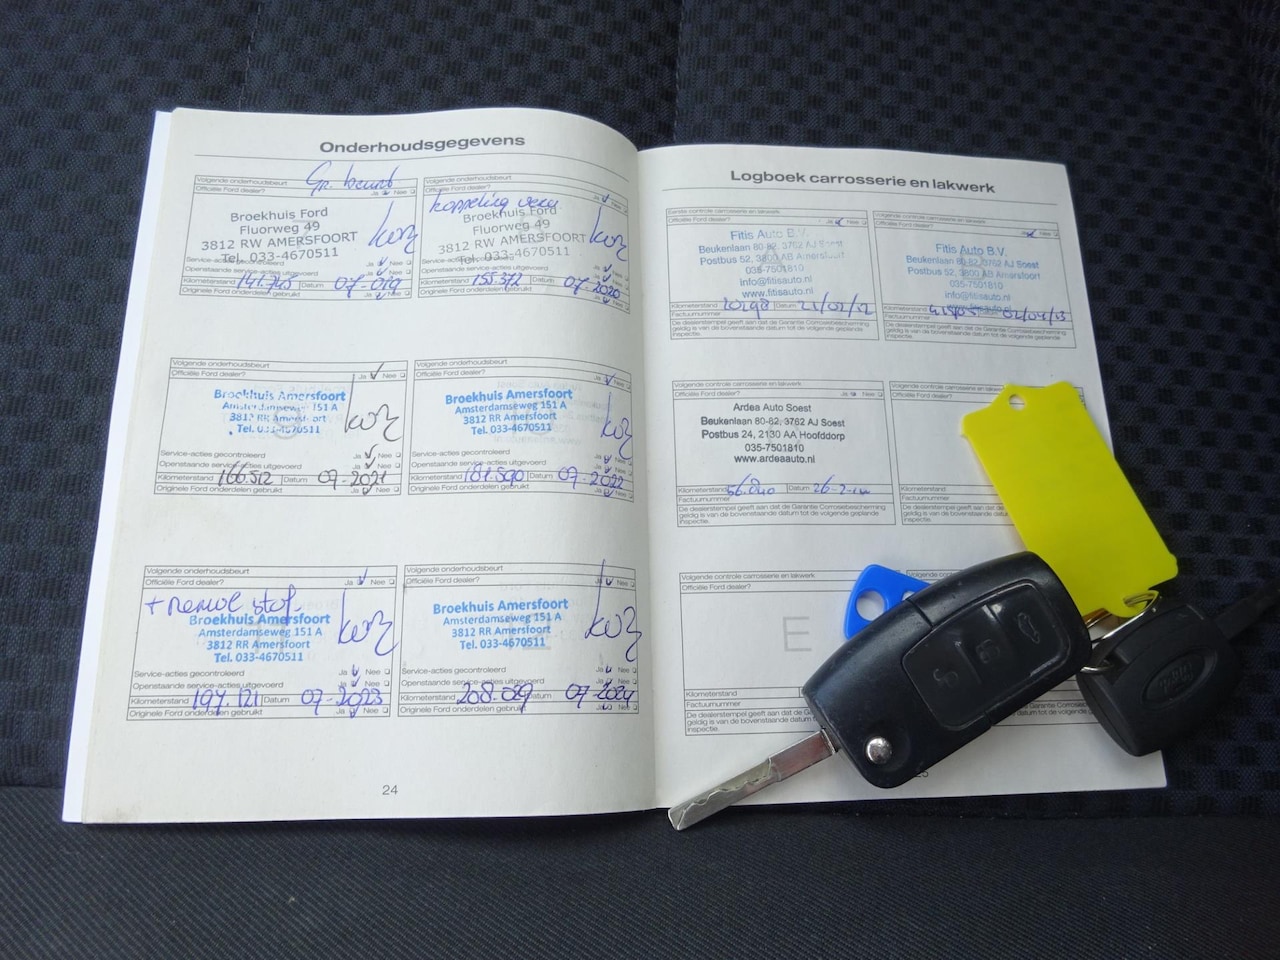 Onderhoudsgegevens
Volgende onderhoudsbeurt Gr. beurt
Officiële Ford dealer? Ja Nee
Broekhuis Ford
Fluorweg 49
3812 RW AMERSFOORT
Tel. 033-4670511
Service-acties gecontroleerd
Openstaande service-acties uitgevoerd
Kilometerstand 141.745 Datum 07-019
Originele Ford onderdelen gebruikt
Volgende onderhoudsbeurt
Officiële Ford dealer?
koppeling
Broekhuis Ford
Fluorweg 49
3812 RW AMERSFOORT
Tel. 033-4670511
Service-acties gecontroleerd
Openstaande service-acties uitgevoerd
Kilometerstand 155.372 Datum 07-2020
Originele Ford onderdelen gebruikt
Volgende onderhoudsbeurt
Officiële Ford dealer? Ja Nee
Broekhuis Amersfoort
Amsterdamseweg 151 A
3812 RR Amersfoort
Tel. 033-4670511
Service-acties gecontroleerd
Openstaande service-acties uitgevoerd
Kilometerstand 166.512 Datum 07-2021
Originele Ford onderdelen gebruikt
Volgende onderhoudsbeurt
Officiële Ford dealer? Ja Nee
Broekhuis Amersfoort
Amsterdamseweg 151 A
3812 RR Amersfoort
Tel. 033-4670511
Service-acties gecontroleerd
Openstaande service-acties uitgevoerd
Kilometerstand 181.590 Datum 07-2022
Originele Ford onderdelen gebruikt
Volgende onderhoudsbeurt
Officiële Ford dealer? Ja Nee
Broekhuis Amersfoort
Amsterdamseweg 151 A
3812 RR Amersfoort
Tel. 033-4670511
Service-acties gecontroleerd Ja Nee
Openstaande service-acties uitgevoerd Ja Nee
Kilometerstand 197.121 Datum 07-2023
Originele Ford onderdelen gebruikt Ja Nee
Volgende onderhoudsbeurt
Officiële Ford dealer? Ja Nee
Broekhuis Amersfoort
Amsterdamseweg 151 A
3812 RR Amersfoort
Tel. 033-4670511
Service-acties gecontroleerd Ja Nee
Openstaande service-acties uitgevoerd Ja Nee
Kilometerstand 208.029 Datum 07-2024
Originele Ford onderdelen gebruikt Ja Nee
24
Logboek carrosserie en lakwerk
Eerste controle carrosserie en lakwerk
Officiële Ford dealer? Ja Nee
Fitis Auto B.V.
Beukenlaan 80-82, 3762 AJ Soest
Postbus 52, 3800 AB Amersfoort
035-7501810
info@fitisauto.nl
www.fitisauto.nl
Kilometerstand Datum
Factuurnummer
De dealerstempel geeft aan dat de Garantie Corrosiebescherming
geldig is van de bovenstaande datum tot de volgende geplande
inspectie.
Volgende controle carrosserie en lakwerk
Officiële Ford dealer? Ja Nee
Fitis Auto B.V.
Beukenlaan 80-82, 3762 AJ Soest
Postbus 52, 3800 AB Amersfoort
035-7501810
info@fitisauto.nl
www.fitisauto.nl
Kilometerstand
Factuurnummer
De dealerstempel geeft aan dat de Garantie Corrosiebescherming
geldig is van de bovenstaande datum tot de volgende geplande
inspectie.
Volgende controle carrosserie en lakwerk
Officiële Ford dealer? Ja Nee
Ardea Auto Soest
Beukenlaan 80-82, 3762 AJ Soest
Postbus 24, 2130 AA Hoofddorp
035-7501810
www.ardeaauto.nl
Kilometerstand Datum
Factuurnummer
De dealerstempel geeft aan dat de Garantie Corrosiebescherming
geldig is van de bovenstaande datum tot de volgende geplande
inspectie.
Volgende controle carrosserie en lakwerk
Officiële Ford dealer?
Kilometerstand
Factuurnummer
De dealerstempel geeft aan dat de
geldig is van de bovenstaande
inspectie.
Volgende controle carrosserie en lakwerk
Officiële Ford dealer?
E
Kilometerstand
Factuurnummer
De dealerstempel geeft aan dat de
geldig is van de bovenstaande datum
inspectie.